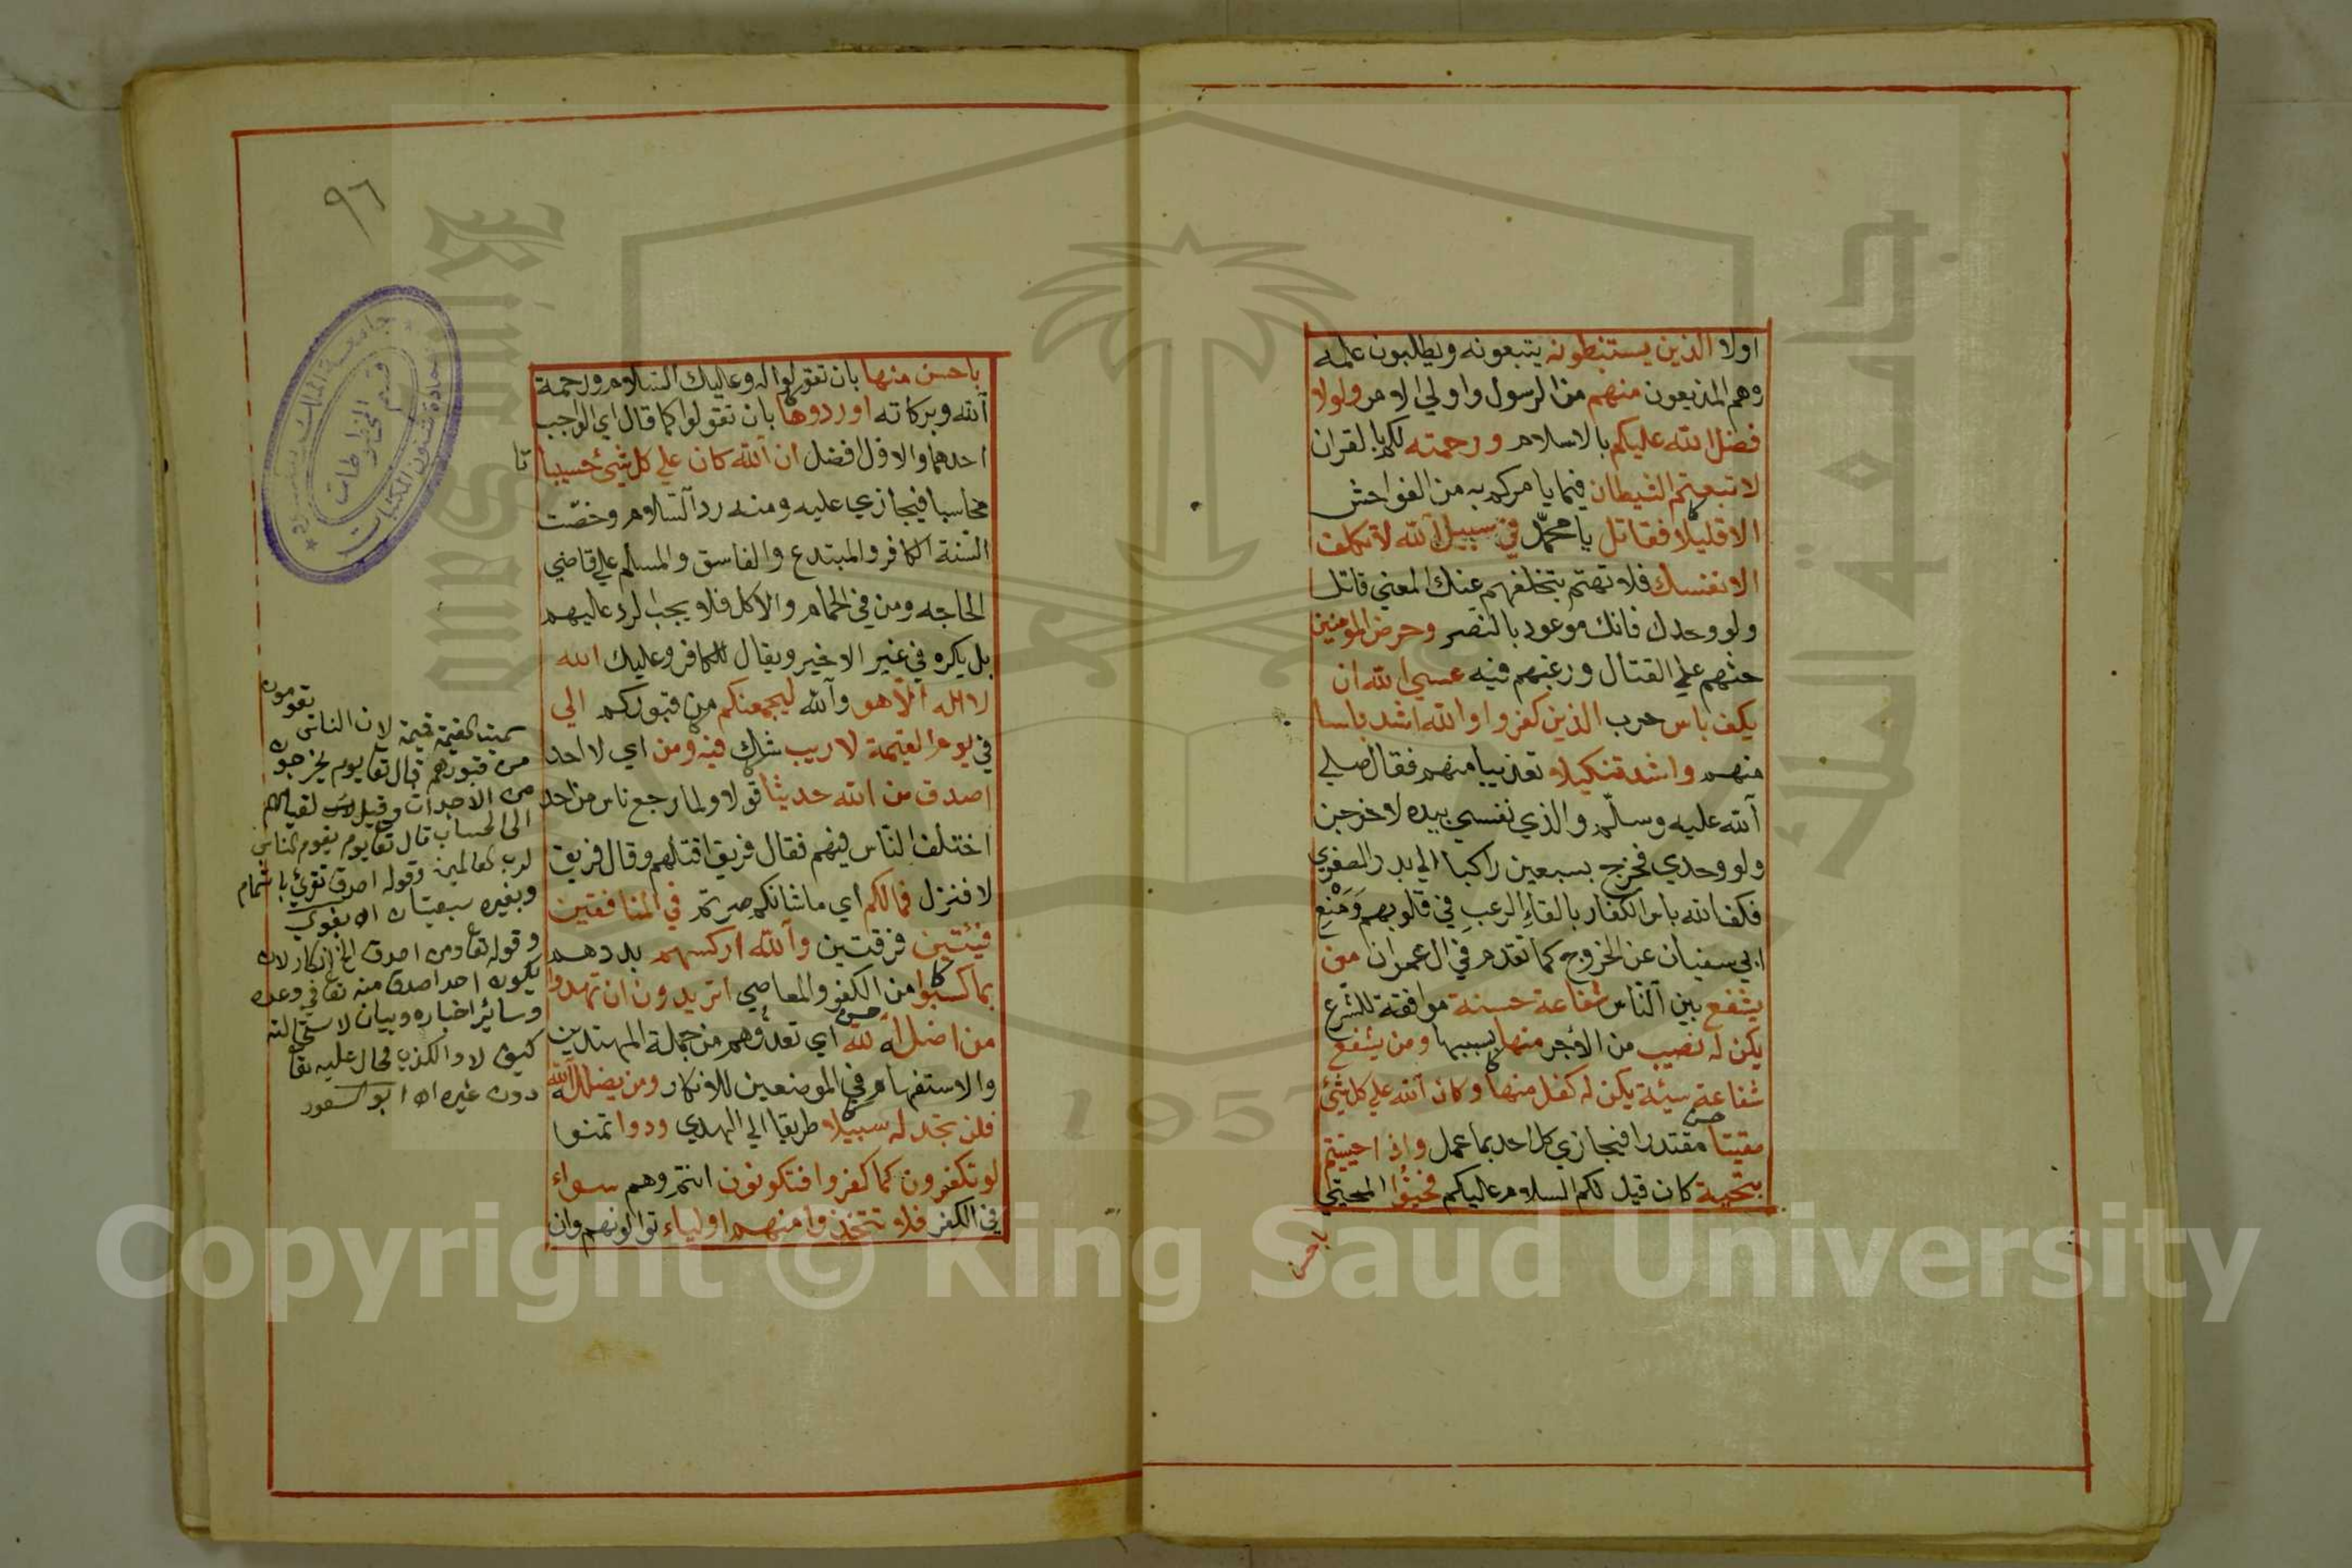 اولا الذين يستنبطونه يتبعونه ويطلبون علمه
وهم المذيعون منهم من الرسول واولي الامر ولولا
فضل الله عليكم بالاسلام ورحمته لكم بالقران
لاتبعتم الشيطان فيما يامركم به من الفواحش
الا قليلا فقاتل يا محمّد في سبيل الله لا تكلف
الا نفسك فلا تهتم بتخلفهم عنك المعني قاتل
ولو وحدك فانك موعود بالنصر وحرض المؤمنين
حثهم علي القتال ورغبهم فيه عسي الله ان
يكف باس حرب الذين كفروا والله اشد باسا
منهم واشد تنكيلا تعذيبا منهم فقال صلي
الله عليه وسلّم والذي نفسي بيده لاخرجن
ولو وحدي فخرج بسبعين راكبا الي بدر الصغري
فكف الله باس الكفار بالقاءِ الرعبِ في قلوبهم وَمَنْعِ
ابي سفيان عن الخروج كما تقدم في ال عمران من
يشفع بين الناس شفاعة حسنة موافقة للشرع
يكن له نصيب من الاجر منها بسببها ومن يشفع
شفاعة سيئة يكن له كفل منها وكان الله علي كل شيئ
مقيتا مقتدرا فيجازي كل احد بما عمل واذا حييتم
بتحية كان قيل لكم السلام عليكم فحيوا المحيي
باحسن
٩٦
جامعة الملك سعود
عمادة شئون المكتبات
قسم المخطوطات
باحسن منها بان تقولوا له وعليك السلام ورحمة
الله وبركاته او ردوها بان تقولوا كما قال اي الواجب
احدهما والاول افضل ان الله كان علي كل شيئ حسيبا
محاسبا فيجازي عليه ومنه رد السلام وخصّت
السنة الكافر والمبتدع والفاسق والمسلم علي قاضي
الحاجه ومن في الحمام والاكل فلا يجب الرد عليهم
بل يكره في غير الاخير ويقال للكافر وعليك الله
لا اله الا هو والله ليجمعنكم من قبوركم الي
في يوم القيمة لا ريب شك فيه ومن اي لا احد
اصدق من الله حديثا قولا ولما رجع ناس من احد
اختلف الناس فيهم فقال فريق اقتلهم وقال فريق
لا فنزل فمالكم اي ما شانكم صرتم في المنافقين
فيئتين فرقتين والله اركسهم بددهم
بما كسبوا من الكفر والمعاصي اتريدون ان تهدوا
من اضل الله اي تعدوهم من جملة المهتدين
والاستفهام في الموضعين للانكار ومن يضلل الله
فلن تجد له سبيلا طريقا الي الهدي ودوا تمنوا
لو تكفرون كما كفروا فتكونون انتم وهم سواء
في الكفر فلا تتخذوا منهم اولياء توالونهم وان
سميت القيمة قيمة لان الناس يقومون
من قبورهم قال تعا يوم يخرجون
من الاجداث وقيل لقيامهم
الى الحساب قال تعا يوم يقوم الناس
لرب العالمين وقوله اصدق تقرئ باشمام
وبغيره سبعيتان اه بغوي
وقوله تعا ومن اصدق الخ انكار لان
يكون احد اصدق منه تعا في وعده
وسائر اخباره وبيان لاستحالته
كيف لا والكذب محال عليه تعا
دون غيره اه ابو السعود
Copyright © King Saud University
King Saud
جامعة الملك
195